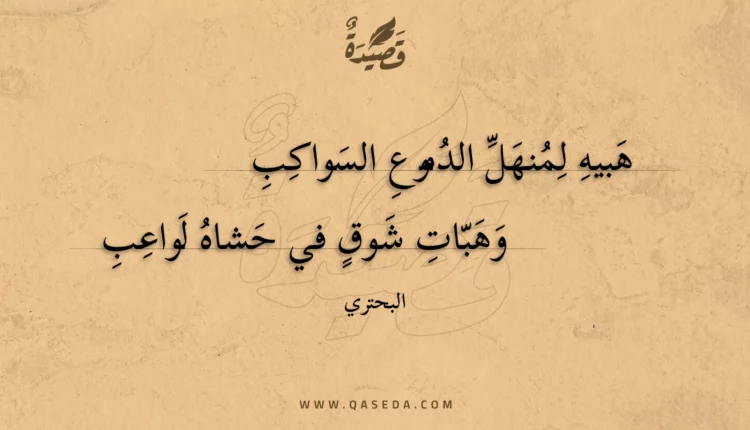 قَصِيدَةٌ
هَبيهِ لِمُنهَلِّ الدُموعِ السَواكِبِ
وَهَبّاتِ شَوقٍ في حَشاهُ لَواعِبِ
البحتري
WWW.QASEDA.COM